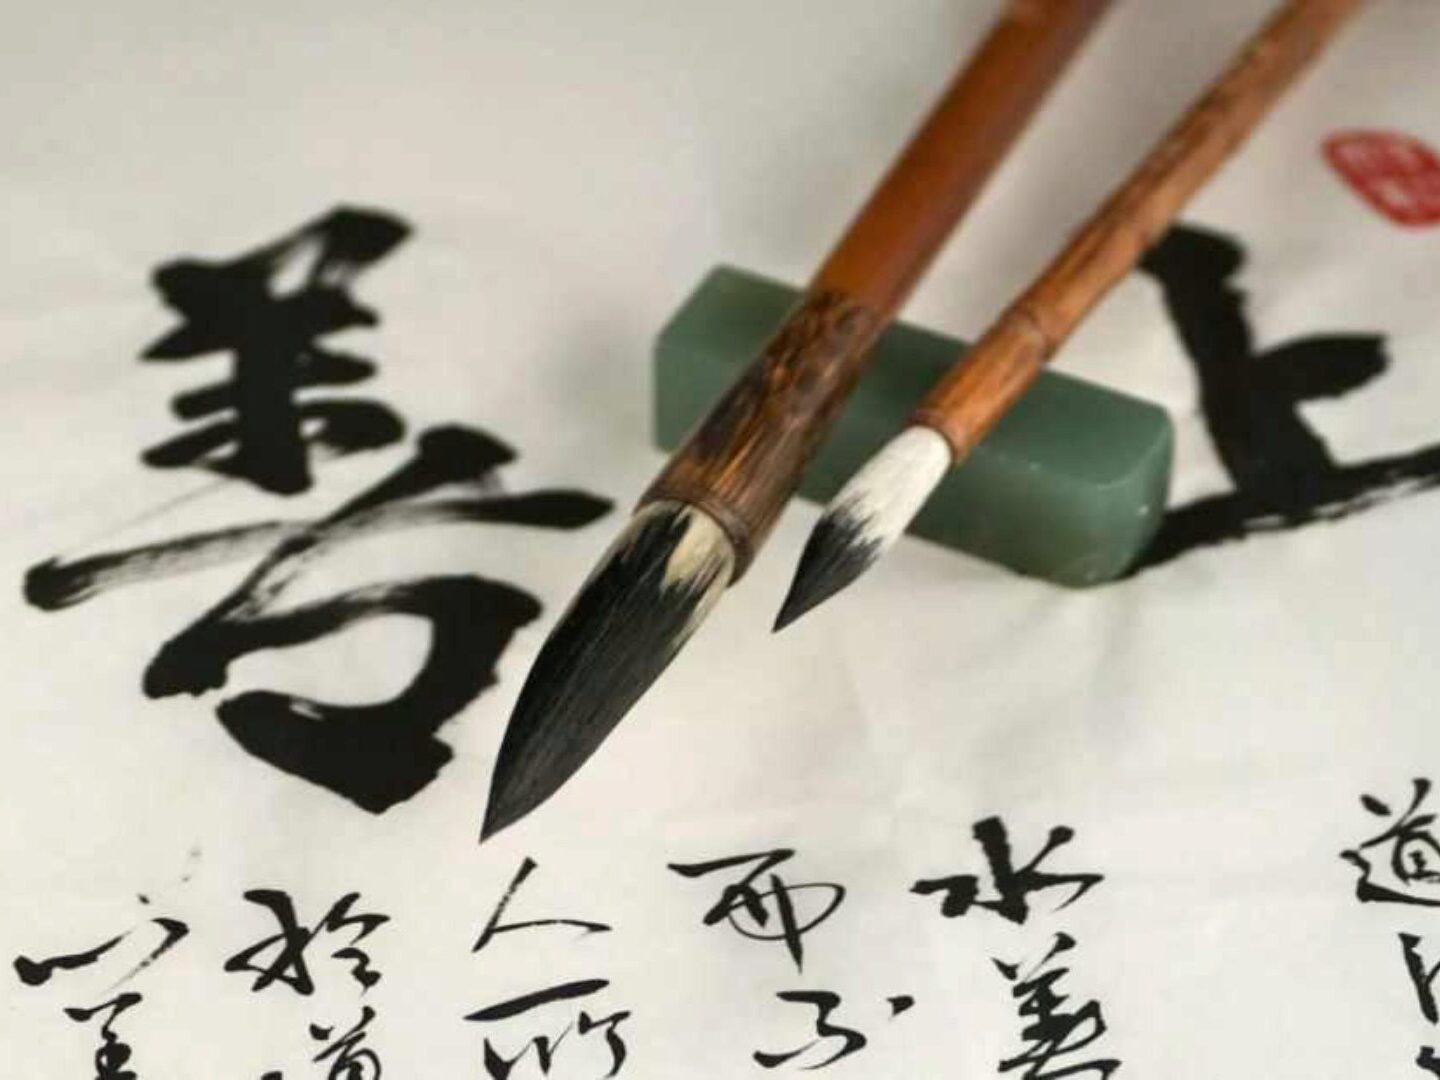 上善
道
水善
而不
人所
於道
心善